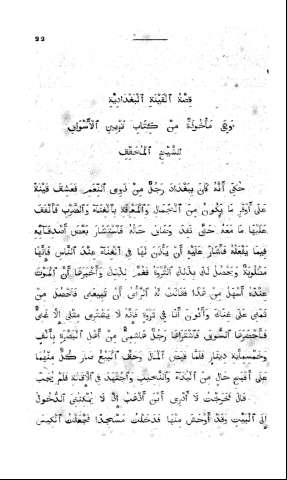 22
قصة القينة البغدادية
وهي مأخوذة من كتاب تزيين الأسواق
للشيخ
حكي أنه كان ببغداد رجل من ذوي النعم فعشق قينة
على أوفر ما يكون من الجمال والمعرفة بالغناء والضرب فأنفق
عليها ما معه حتى نفد وعاين حاله فاستشار بعض أصدقائه
فيما يفعله فأشار عليه أن يأذن لها في الغناء عند الناس فإنها
مطلوبة ويحصل له بذلك الثروة فغم لذلك وأخبرها أن الموت
عنده أسهل من هذا فقالت له الرأي أن تبيعني فتحصل من
ثمني على غناك وأكون أنا في ثروة فإنه لا يشتري مثلي إلا غني
فأحضرها السوق فاشتراها رجل هاشمي من أهل البصرة بألف
وخمسماية دينار فلما قبض المال وحق البيع صار كل منهما
على أقبح حال من البكاء والنحيب واجتهد في الإقالة فلم يجب
قال فخرجت لا أدري أين أذهب إذ لا يمكنني الدخول
إلى البيت وقد أوحش منها فدخلت مسجدا فجعلت الكيس